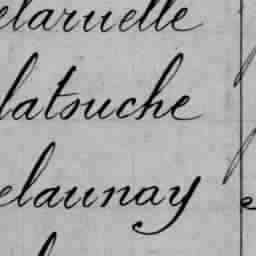 elaruelle
latouche
elaunay